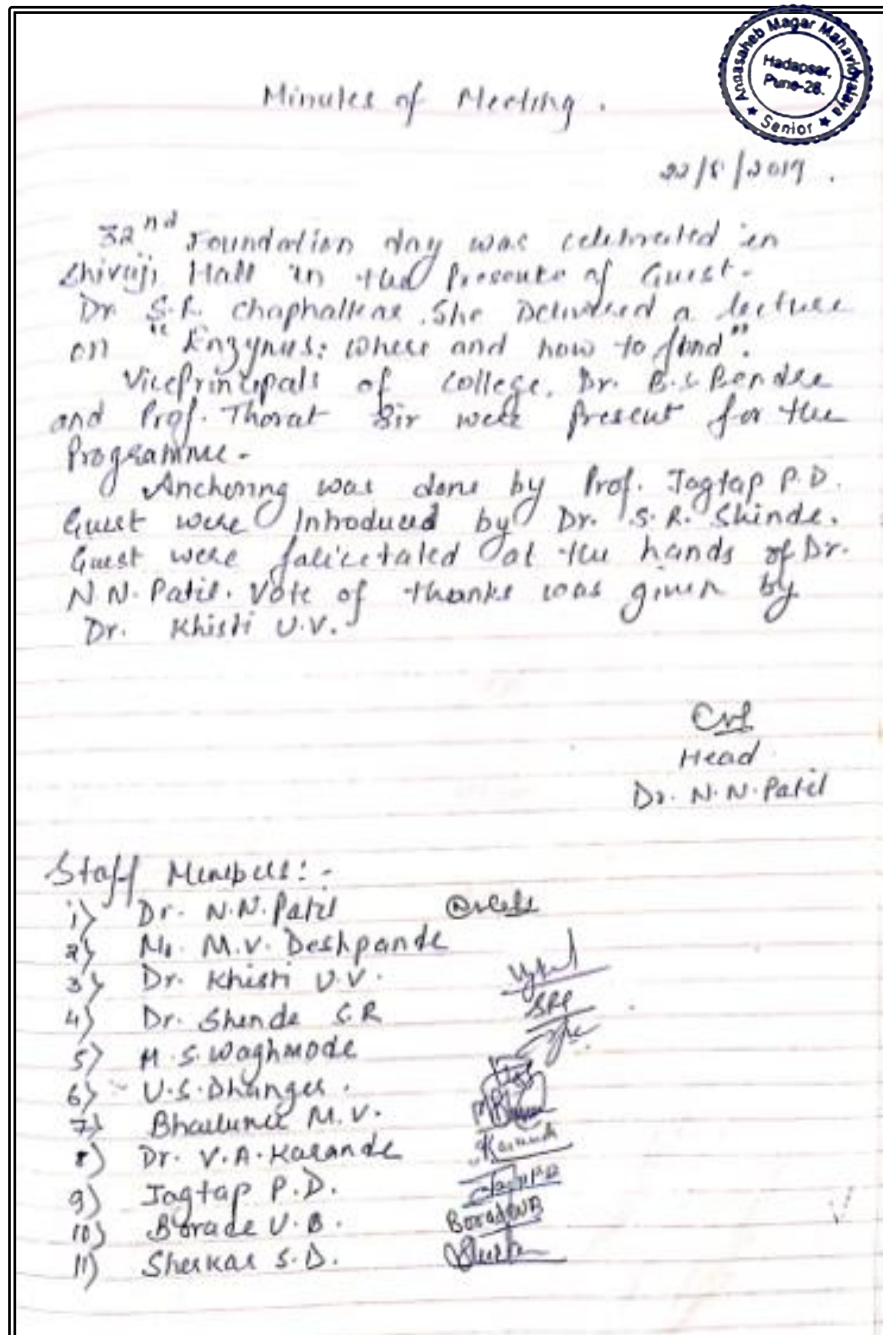 Annasaheb Magar Mahavidyalaya
Hadapsar,
Pune-28.
★ Senior ★
Minutes of Meeting.
22/8/2019.
32nd Foundation day was celebrated in
Shivaji Hall in the Presence of Guest-
Dr S.R. Chaphalkar. She Delivered a lecture
on "Enzymes: where and how to find".
VicePrincipals of College. Dr. B.S. Bendre
and Prof. Thorat Sir were Present for the
Programme-
Anchoring was done by Prof. Jagtap P.D.
Guest were Introduced by Dr. S.R. Shinde.
Guest were falicetated at the hands of Dr.
N.N. Patil. Vote of thanks was given by
Dr. Khisti U.V.
Head
Dr. N.N. Patil
Staff Members:-
1) Dr. N.N. Patil
2) M.V. Deshpande
3) Dr. Khisti U.V.
4) Dr. Shende S.R
5) M.S. Waghmode
6) U.S. Dhanges.
7) M.V.
8) Dr. V.A. Karande
9) Jagtap P.D.
10) Borade U.B. BoradeUB
11) Sherkar S.D.